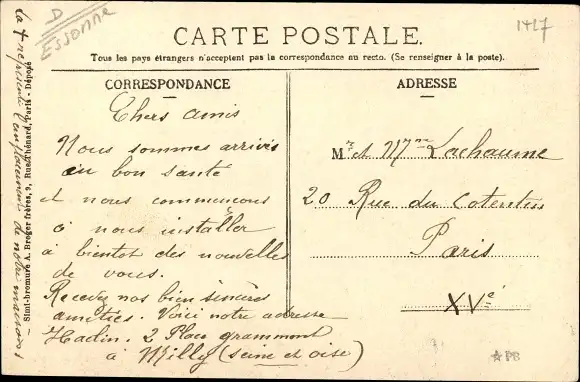 D
ESSONNE
1417
CARTE POSTALE.
Tous les pays étrangers n'acceptent pas la correspondance au recto. (Se renseigner à la poste).
CORRESPONDANCE
Chers amis
Nous sommes arrivés
en bon santé
et nous commencons
à nous installer
à bientot des nouvelles
de vous.
Recevez nos bien sincères
amitiés. Voici notre adresse
Hadin. 2 Place grammont
à Milly (seine et oise)
ADRESSE
Mr et Mme Lachaume
20 Rue du Cotentin
Paris
XVe
La + represente l'emplacement de notre maison
Simi-bromure A. Breger frères, 9, Rue Thénard, Paris - Déposé